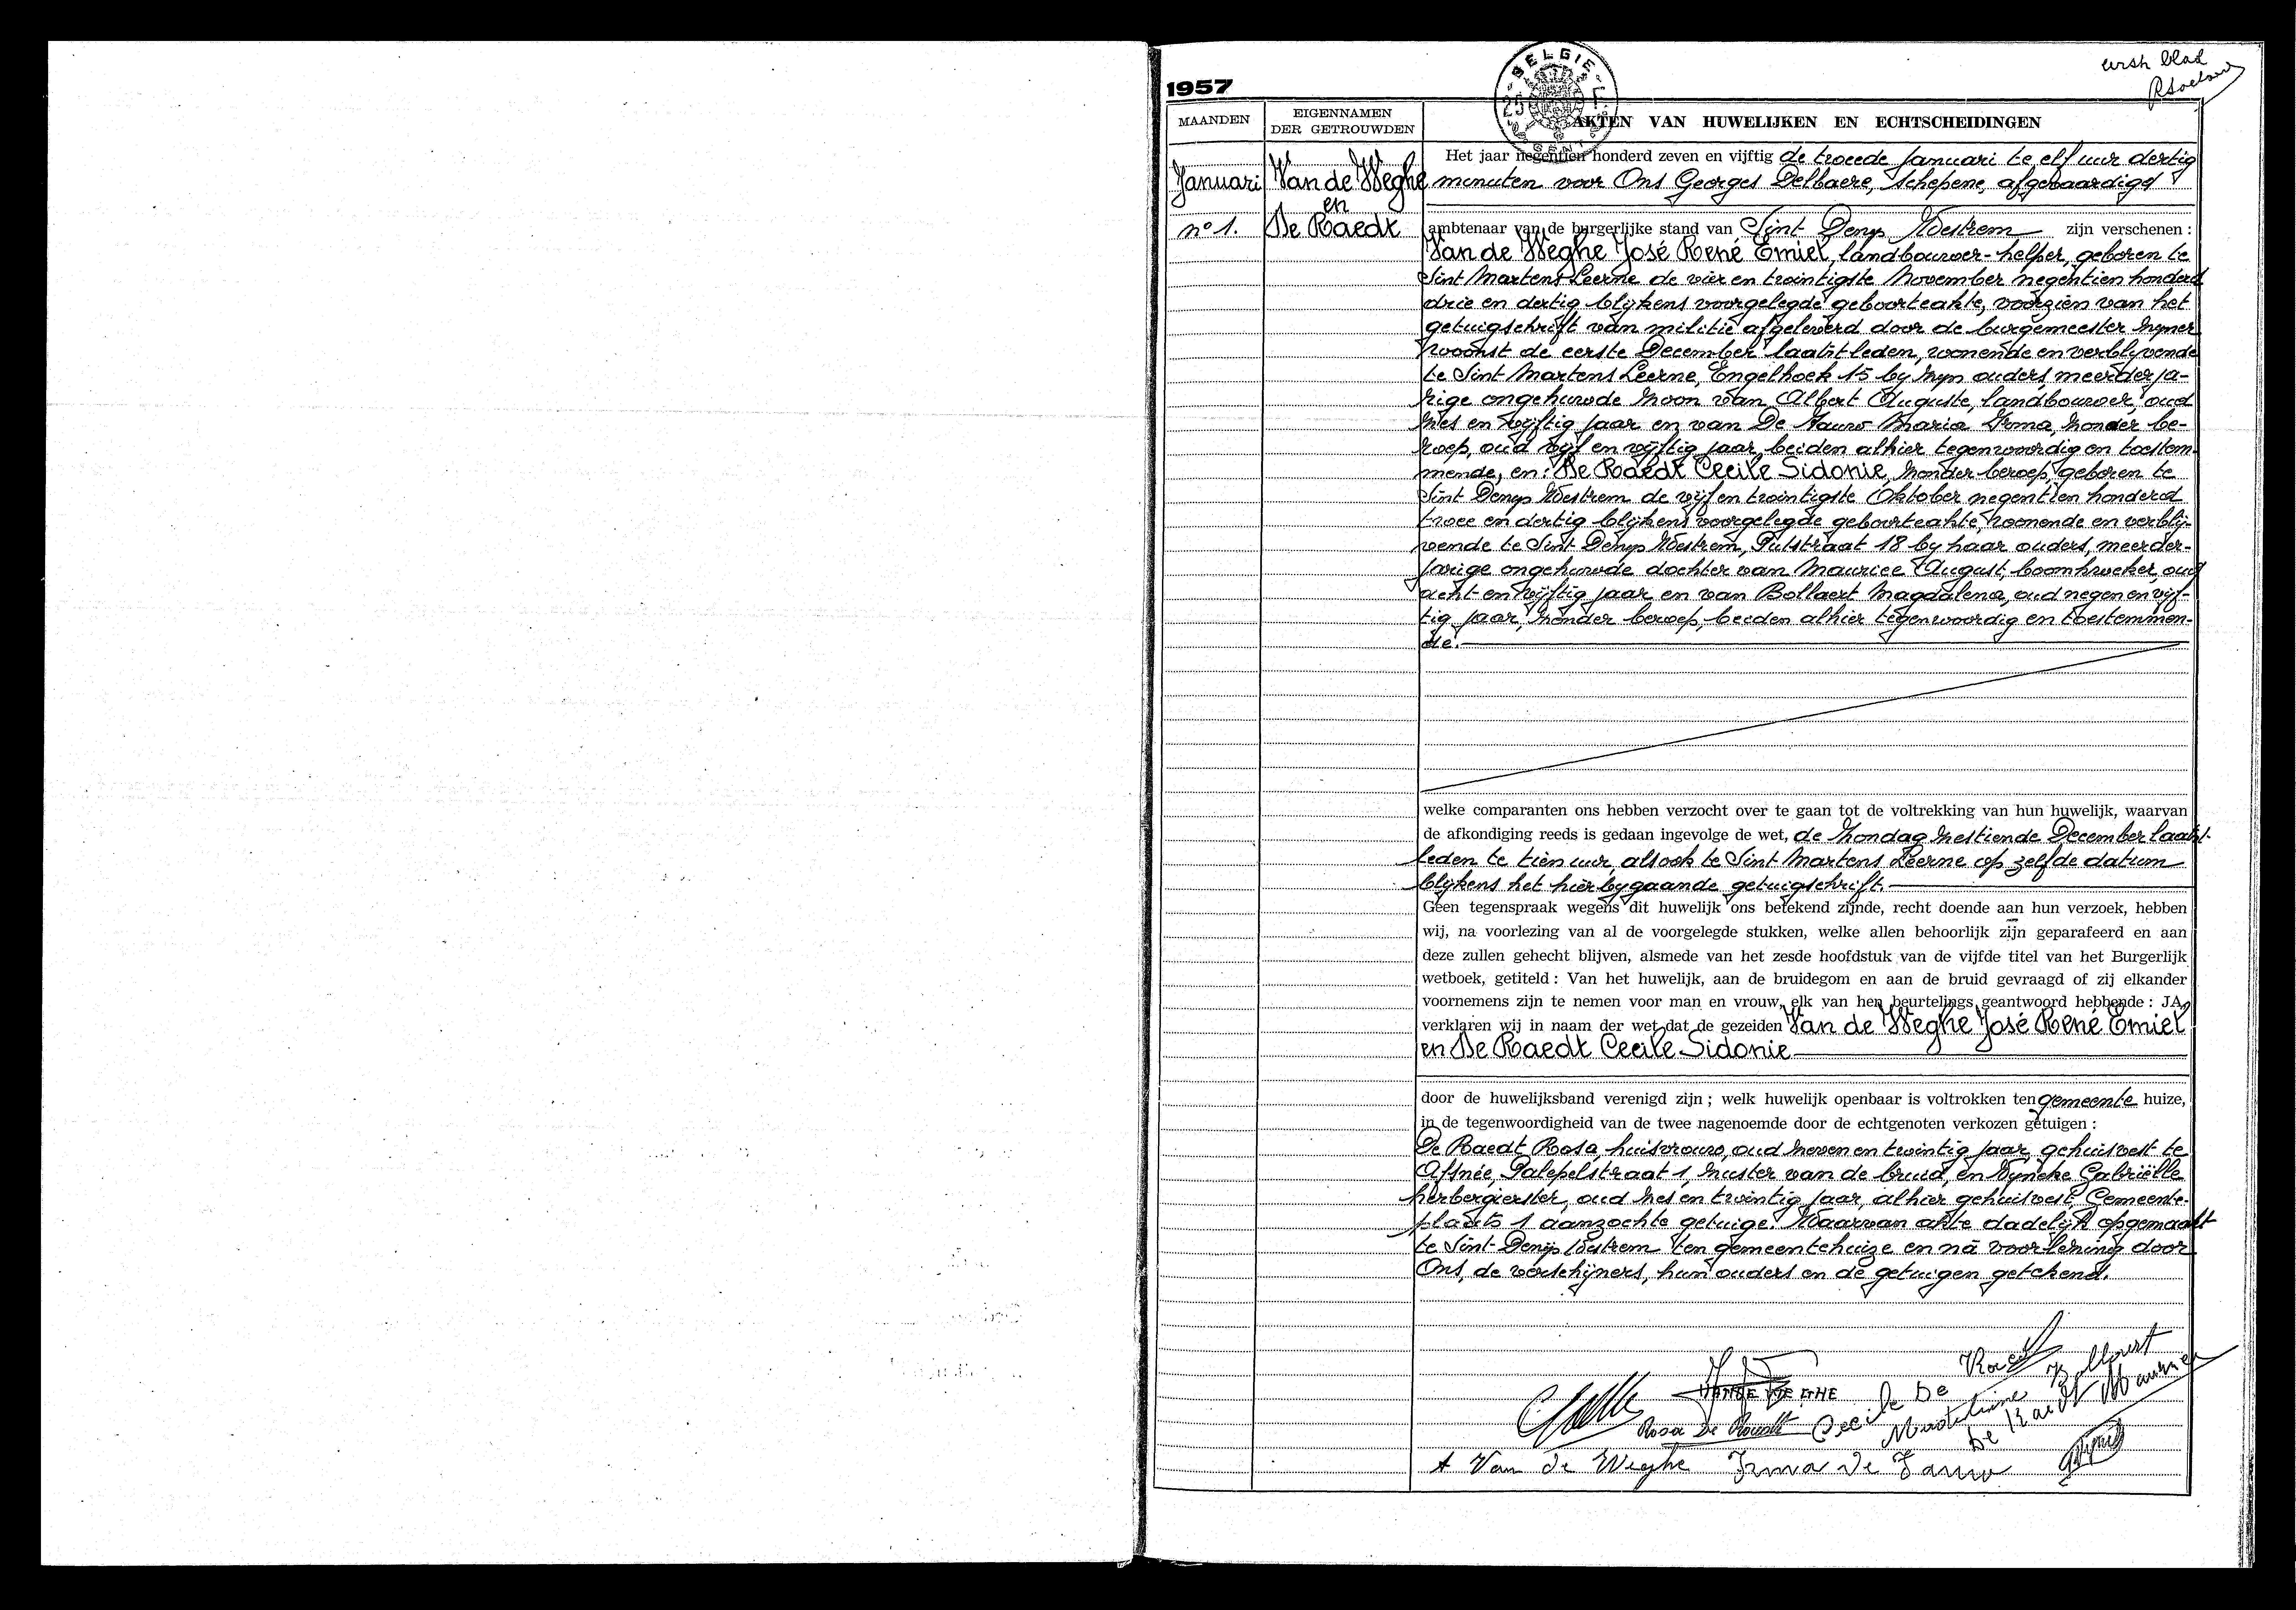 eerste blad
1957
BELGIE
25 F
MAANDEN
EIGENNAMEN
DER GETROUWDEN
AKTEN VAN HUWELIJKEN EN ECHTSCHEIDINGEN
Januari
nº 1.
Van de Weghe
en
De Raedt
Het jaar negentien honderd zeven en vijftig de tweede Januari te elf uur dertig
minuten voor Ons Georges Delbaere, Schepene, afgevaardigd
ambtenaar van de burgerlijke stand van Sint Denys Westrem zijn verschenen :
Van de Weghe José René Emiel, landbouwer-helper, geboren te
Sint Martens Leerne de vier en twintigste November negentien honderd
drie en dertig blijkens voorgelegde geboorteakte, voorzien van het
getuigschrift van militie afgeleverd door de burgemeester zijner
woonst de eerste December laatstleden, wonende en verblijvende
te Sint Martens Leerne, Engelhoek 15 bij zijn ouders, meerderja-
rige ongehuwde zoon van Albert Auguste, landbouwer, oud
zes en vijftig jaar en van De Fauw Maria Irma, zonder be-
roep, oud vijf en vijftig jaar, beiden alhier tegenwoordig en toestem-
mende, en : De Raedt Cecile Sidonie, zonder beroep, geboren te
Sint Denys Westrem de vijf en twintigste Oktober negentien honderd
twee en dertig blijkens voorgelegde geboorteakte, wonende en verblij-
vende te Sint Denys Westrem, Putstraat 18 bij haar ouders, meerder-
jarige ongehuwde dochter van Maurice August, boomkweker, oud
acht en vijftig jaar en van Bollaert Magdalena, oud negen en vijf-
tig jaar, zonder beroep, beiden alhier tegenwoordig en toestemmen-
de.
welke comparanten ons hebben verzocht over te gaan tot de voltrekking van hun huwelijk, waarvan
de afkondiging reeds is gedaan ingevolge de wet, de Zondag zestiende December laatst-
leden te tien uur, alsook te Sint Martens Leerne op zelfde datum
blijkens het hierbijgaande getuigschrift.
Geen tegenspraak wegens dit huwelijk ons betekend zijnde, recht doende aan hun verzoek, hebben
wij, na voorlezing van al de voorgelegde stukken, welke allen behoorlijk zijn geparafeerd en aan
deze zullen gehecht blijven, alsmede van het zesde hoofdstuk van de vijfde titel van het Burgerlijk
wetboek, getiteld : Van het huwelijk, aan de bruidegom en aan de bruid gevraagd of zij elkander
voornemens zijn te nemen voor man en vrouw, elk van hen beurtelings geantwoord hebbende : JA,
verklaren wij in naam der wet dat de gezeiden Van de Weghe José René Emiel
en De Raedt Cecile Sidonie
door de huwelijksband verenigd zijn ; welk huwelijk openbaar is voltrokken ten gemeente huize,
in de tegenwoordigheid van de twee nagenoemde door de echtgenoten verkozen getuigen :
De Raedt Rosa, huisvrouw, oud zeven en twintig jaar, gehuisvest te
Afsnee, Palepelstraat 1, zuster van de bruid, en Wyncke Gabriëlle
herbergierster, oud zes en twintig jaar, alhier gehuisvest, Gemeente-
plaats 1 aanzochte getuige. Waarvan akte dadelijk opgemaakt
te Sint-Denijs Westrem ten gemeentehuize en na voorlezing door
Ons, de verschijners, hun ouders en de getuigen getekend.
VAN DE WEGHE
Cecile De Raedt
Rosa De Raedt
Magdalena Bollaert
De Raedt Maurice
A Van de Weghe Irma De Fauw